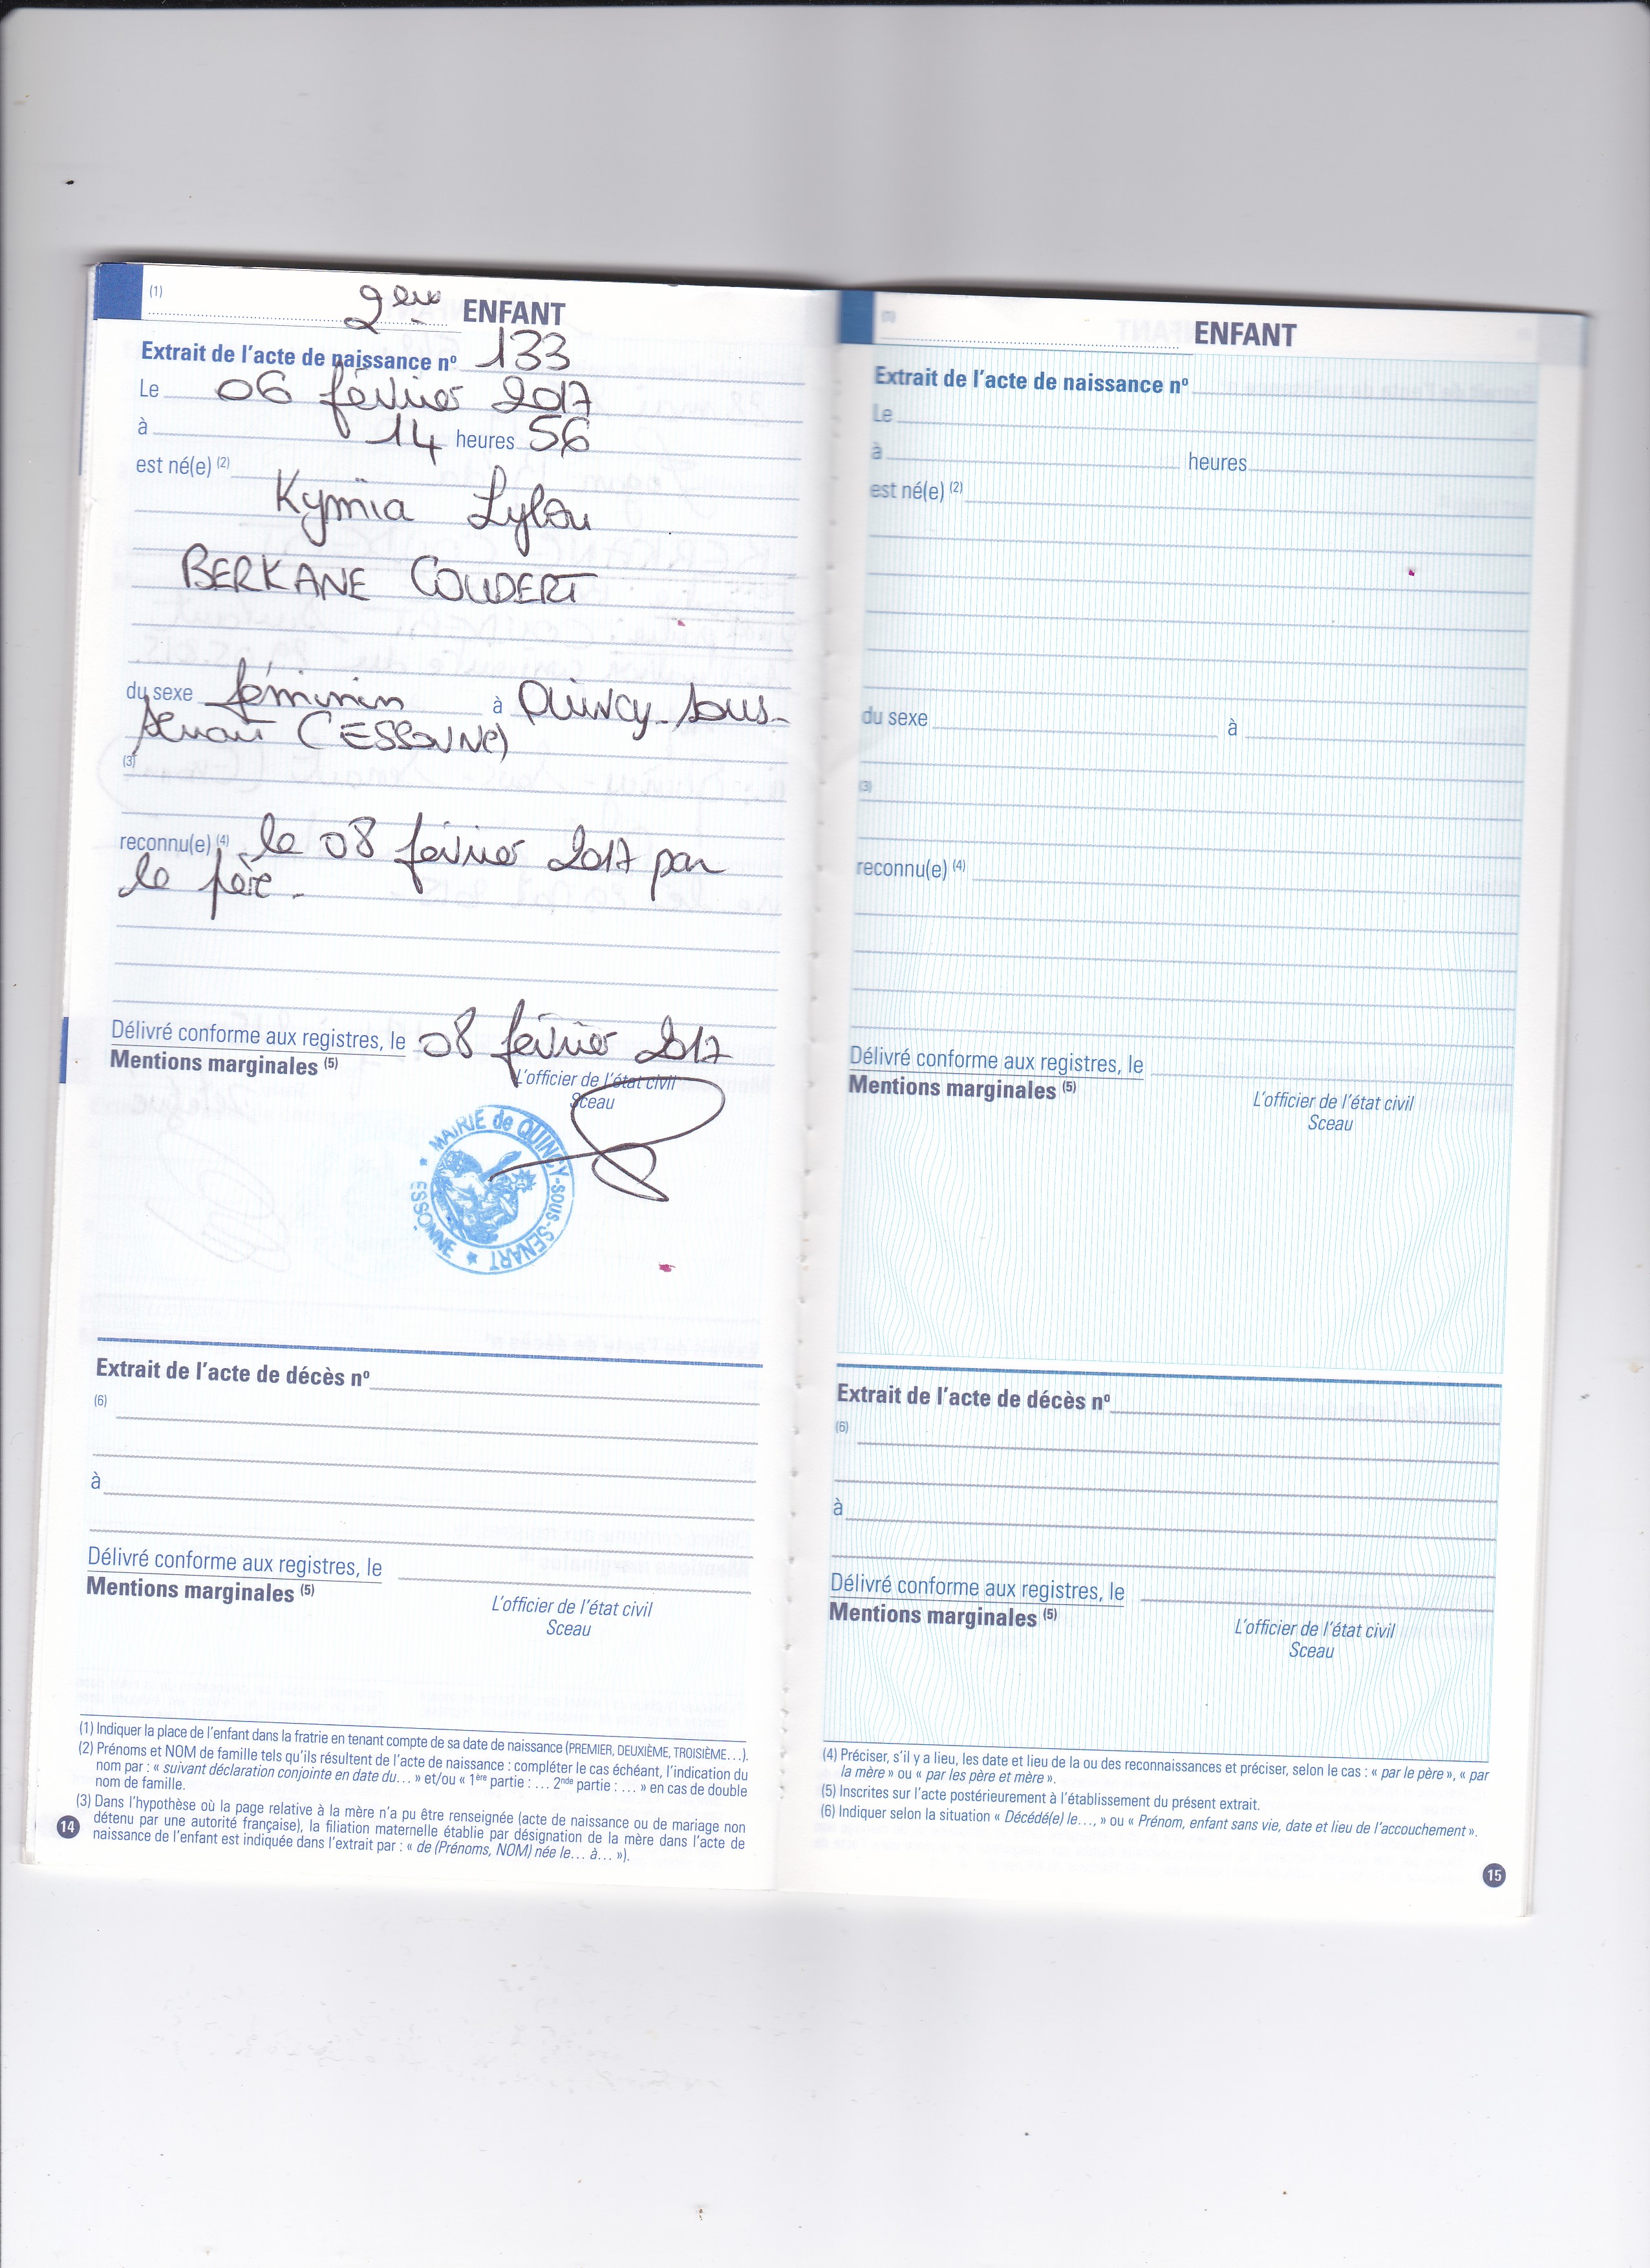 (1) 2ème ENFANT
Extrait de l'acte de naissance nº 133
Le 06 février 2017
à 14 heures 56
est né(e) (2)
Kymia Lylou
BERKANE COUDERT
du sexe féminin à Quincy-sous-
Sénart (ESSONNE)
(3)
reconnu(e) (4) le 08 février 2017 par
le père.
Délivré conforme aux registres, le 08 février 2017
Mentions marginales (5)
L'officier de l'état civil
Sceau
MAIRIE de QUINCY-SOUS-SENART
ESSONNE
Extrait de l'acte de décès nº
(6)
à
Délivré conforme aux registres, le
Mentions marginales (5)
L'officier de l'état civil
Sceau
(1) Indiquer la place de l'enfant dans la fratrie en tenant compte de sa date de naissance (PREMIER, DEUXIÈME, TROISIÈME…).
(2) Prénoms et NOM de famille tels qu'ils résultent de l'acte de naissance : compléter le cas échéant, l'indication du
nom par : « suivant déclaration conjointe en date du… » et/ou « 1ère partie : … 2nde partie : … » en cas de double
nom de famille.
(3) Dans l'hypothèse où la page relative à la mère n'a pu être renseignée (acte de naissance ou de mariage non
détenu par une autorité française), la filiation maternelle établie par désignation de la mère dans l'acte de
naissance de l'enfant est indiquée dans l'extrait par : « de (Prénoms, NOM) née le… à… »).
14
(1) ENFANT
Extrait de l'acte de naissance nº
Le
à heures
est né(e) (2)
du sexe à
(3)
reconnu(e) (4)
Délivré conforme aux registres, le
Mentions marginales (5)
L'officier de l'état civil
Sceau
Extrait de l'acte de décès nº
(6)
à
Délivré conforme aux registres, le
Mentions marginales (5)
L'officier de l'état civil
Sceau
(4) Préciser, s'il y a lieu, les date et lieu de la ou des reconnaissances et préciser, selon le cas : « par le père », « par
la mère » ou « par les père et mère ».
(5) Inscrites sur l'acte postérieurement à l'établissement du présent extrait.
(6) Indiquer selon la situation « Décédé(e) le…, » ou « Prénom, enfant sans vie, date et lieu de l'accouchement ».
15